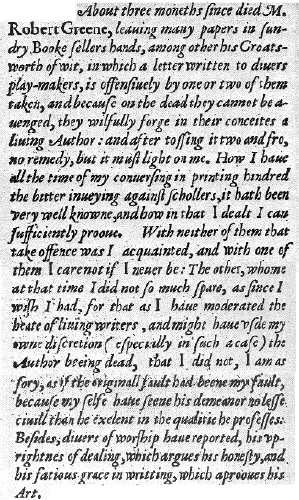 About three moneths since died M.
Robert Greene, leauing many papers in sun-
dry Booke sellers hands, among other his Groats-
worth of wit, in which a letter written to diuers
play-makers, is offensiuely by one or two of them
taken, and because on the dead they cannot be a-
uenged, they wilfully forge in their conceites a
liuing Author: and after tossing it two and fro,
no remedy, but it must light on me. How I haue
all the time of my conuersing in printing hindred
the bitter inueying against schollers, it hath been
very well knowne, and how in that I dealt I can
sufficiently prooue. With neither of them that
take offence was I acquainted, and with one of
them I care not if I neuer be: The other, whome
at that time I did not so much spare, as since I
wish I had, for that as I haue moderated the
heate of liuing writers, and might haue vsde my
owne discretion (especially in such a case) the
Author beeing dead, that I did not, I am as
sory, as if the originall fault had beene my fault,
because my selfe haue seene his demeanor no lesse
ciuill than he exelent in the qualitie he professes:
Besides, diuers of worship haue reported, his vp-
rightnes of dealing, which argues his honesty, and
his fatious grace in writting, which aprooues his
Art.